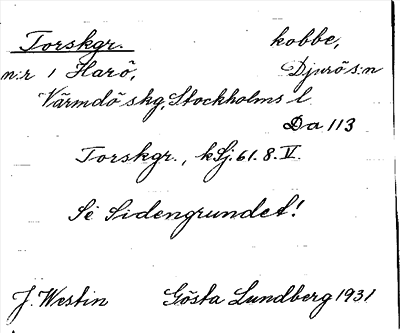 Torskgr. kobbe,
n:r 1 Harö, Djurö s:n
Värmdö skg, Stockholms l
Da 113
Torskgr., kSj. 61. 8. V.
Se Sidengrundet!
J. Westin Gösta Lundberg 1931